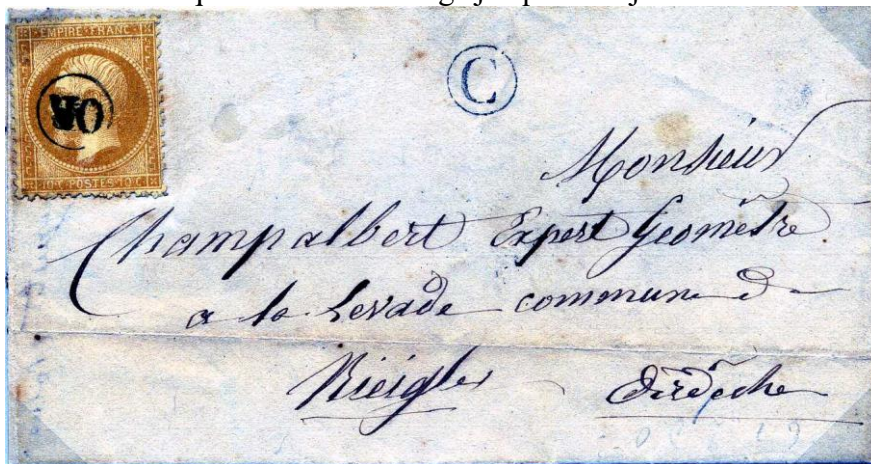 EMPIRE FRANC
OR
10 C POSTES 10 C
C
Monsieur
Champalbert Expert Geomètre
a la Levade commune de
Ardèche